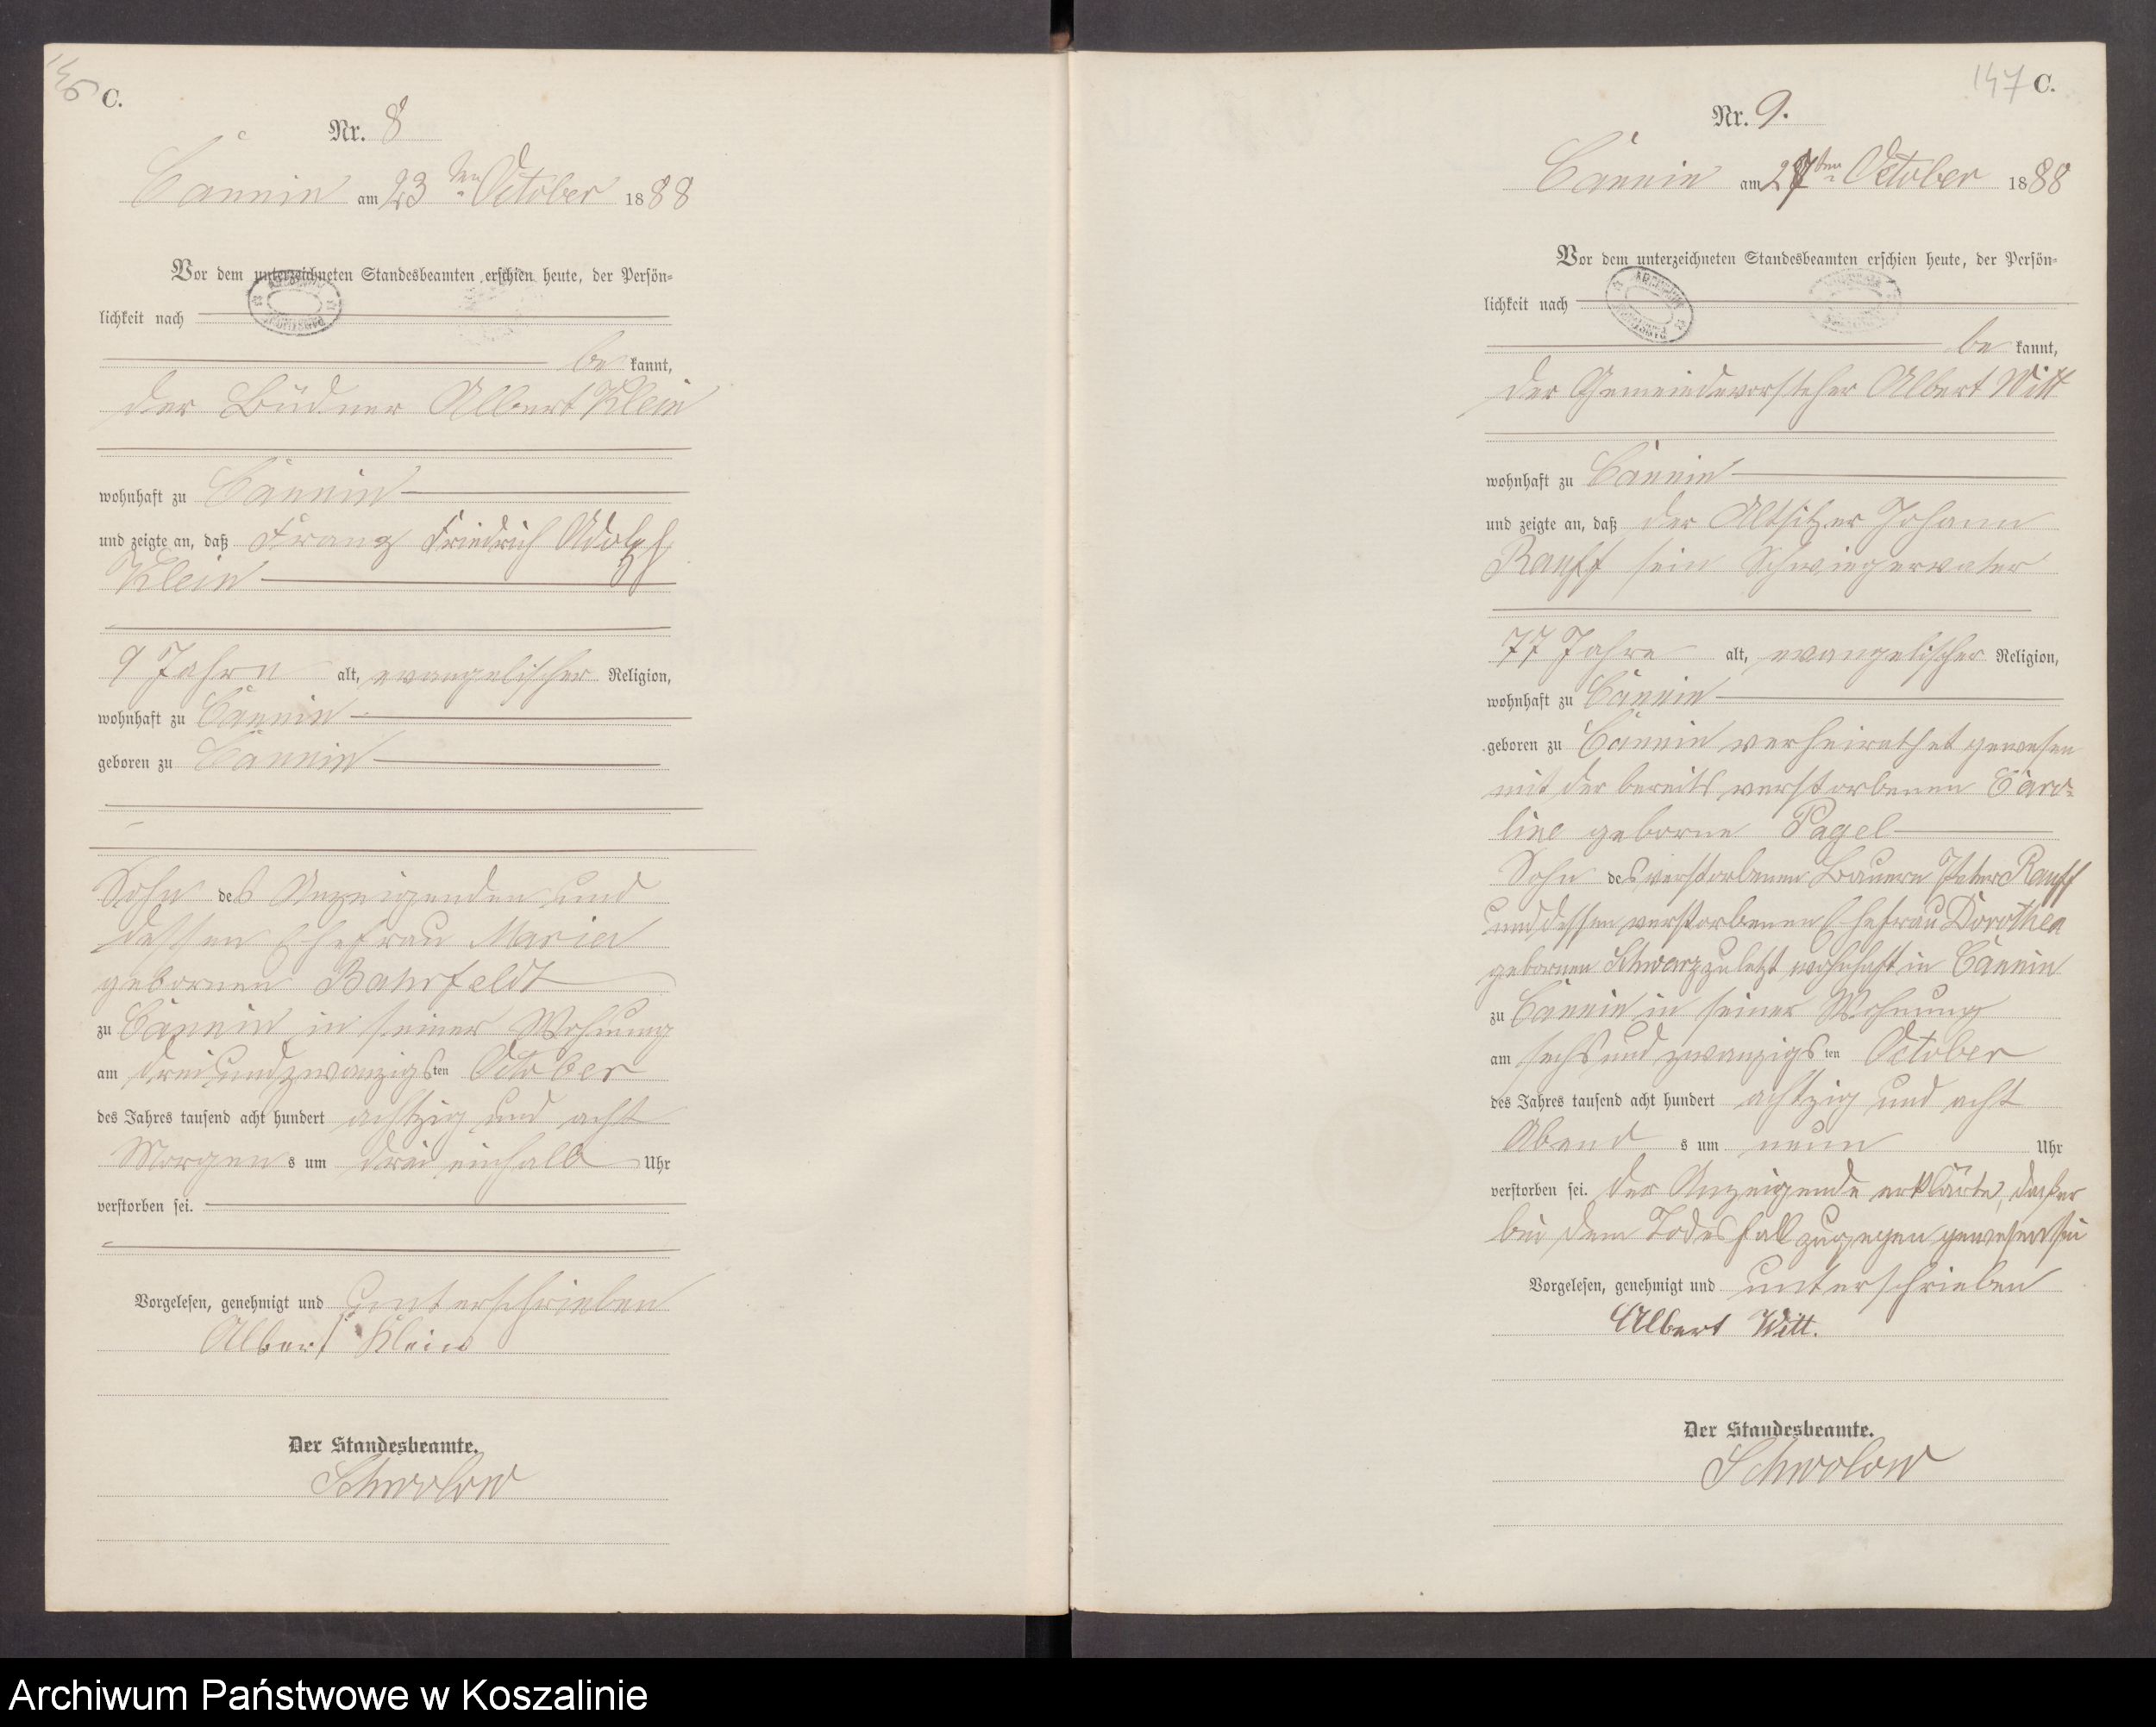 146 C.
Nr. 8
Cännin am 23ten October 1888
Vor dem unterzeichneten Standesbeamten erschien heute, der Persön-
lichkeit nach
be kannt,
der Büdner Albert Klein
wohnhaft zu Cännin
und zeigte an, daß Franz Friedrich Adolph
Klein
9 Jahre alt, evangelischer Religion,
wohnhaft zu Cännin
geboren zu Cännin
Sohn des Anzeigenden und
dessen Ehefrau Maria
gebornen Bahrfeldt
zu Cännin in seiner Wohnung
am drei und zwanzigsten October
des Jahres tausend acht hundert achtzig und acht
Morgens um drei einhalb Uhr
verstorben sei.
Vorgelesen, genehmigt und unterschrieben
Albert Klein
Der Standesbeamte.
Schwolow
147 C.
Nr. 9.
Cännin am 27ten October 1888
Vor dem unterzeichneten Standesbeamten erschien heute, der Persön-
lichkeit nach
be kannt,
der Gemeindevorsteher Albert Witt
wohnhaft zu Cännin
und zeigte an, daß der Altsitzer Johann
Rauff sein Schwiegervater
77 Jahre alt, evangelischer Religion,
wohnhaft zu Cännin
geboren zu Cännin verheirathet gewesen
mit der bereits verstorbenen Caro-
line geborne Pagel
Sohn des verstorbenen Bauern Peter Rauff
und dessen verstorbenen Ehefrau Dorothea
gebornen Schwarz zuletzt wohnhaft in Cännin
zu Cännin in seiner Wohnung
am sechs und zwanzigsten October
des Jahres tausend acht hundert achtzig und acht
Abends um neun Uhr
verstorben sei. Der Anzeigende erklärte, daß er
bei dem Todesfall zugegen gewesen sei
Vorgelesen, genehmigt und unterschrieben
Albert Witt.
Der Standesbeamte.
Schwolow
Archiwum Państwowe w Koszalinie